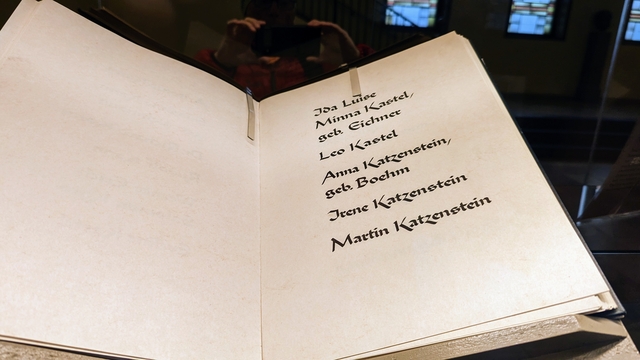 Ida Luise
Minna Kastel,
geb. Eichner
Leo Kastel
Anna Katzenstein,
geb. Boehm
Irene Katzenstein
Martin Katzenstein